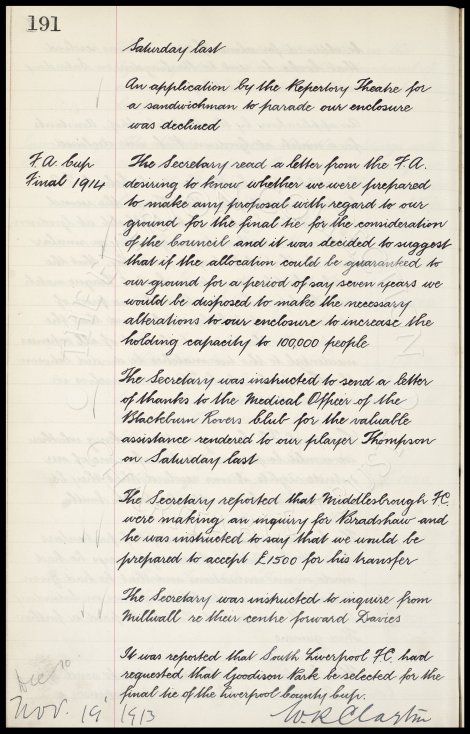 191
Saturday last
An application by the Repertory Theatre for
a sandwichman to parade our enclosure
was declined
F.A Cup
Final 1914
The Secretary read a letter from the F.A.
desiring to know whether we were prepared
to make any proposal with regard to our
ground for the final tie for the consideration
of the Council and it was decided to suggest
that if the allocation could be guaranteed to
our ground for a period of say seven years we
would be disposed to make the necessary
alterations to our enclosure to increase the
holding capacity to 100,000 people
The Secretary was instructed to send a letter
of thanks to the Medical Officer of the
Blackburn Rovers Club for the valuable
assistance rendered to our player Thompson
on Saturday last
The Secretary reported that Middlesbrough F.C.
were making an inquiry for Bradshaw and
he was instructed to say that we would be
prepared to accept £1500 for his transfer
The Secretary was instructed to inquire from
Millwall re their centre forward Davies
It was reported that South Liverpool F.C. had
requested that Goodison Park be selected for the
final tie of the Liverpool County Cup.
Dec 10
Nov. 19 1913
W R Clayton